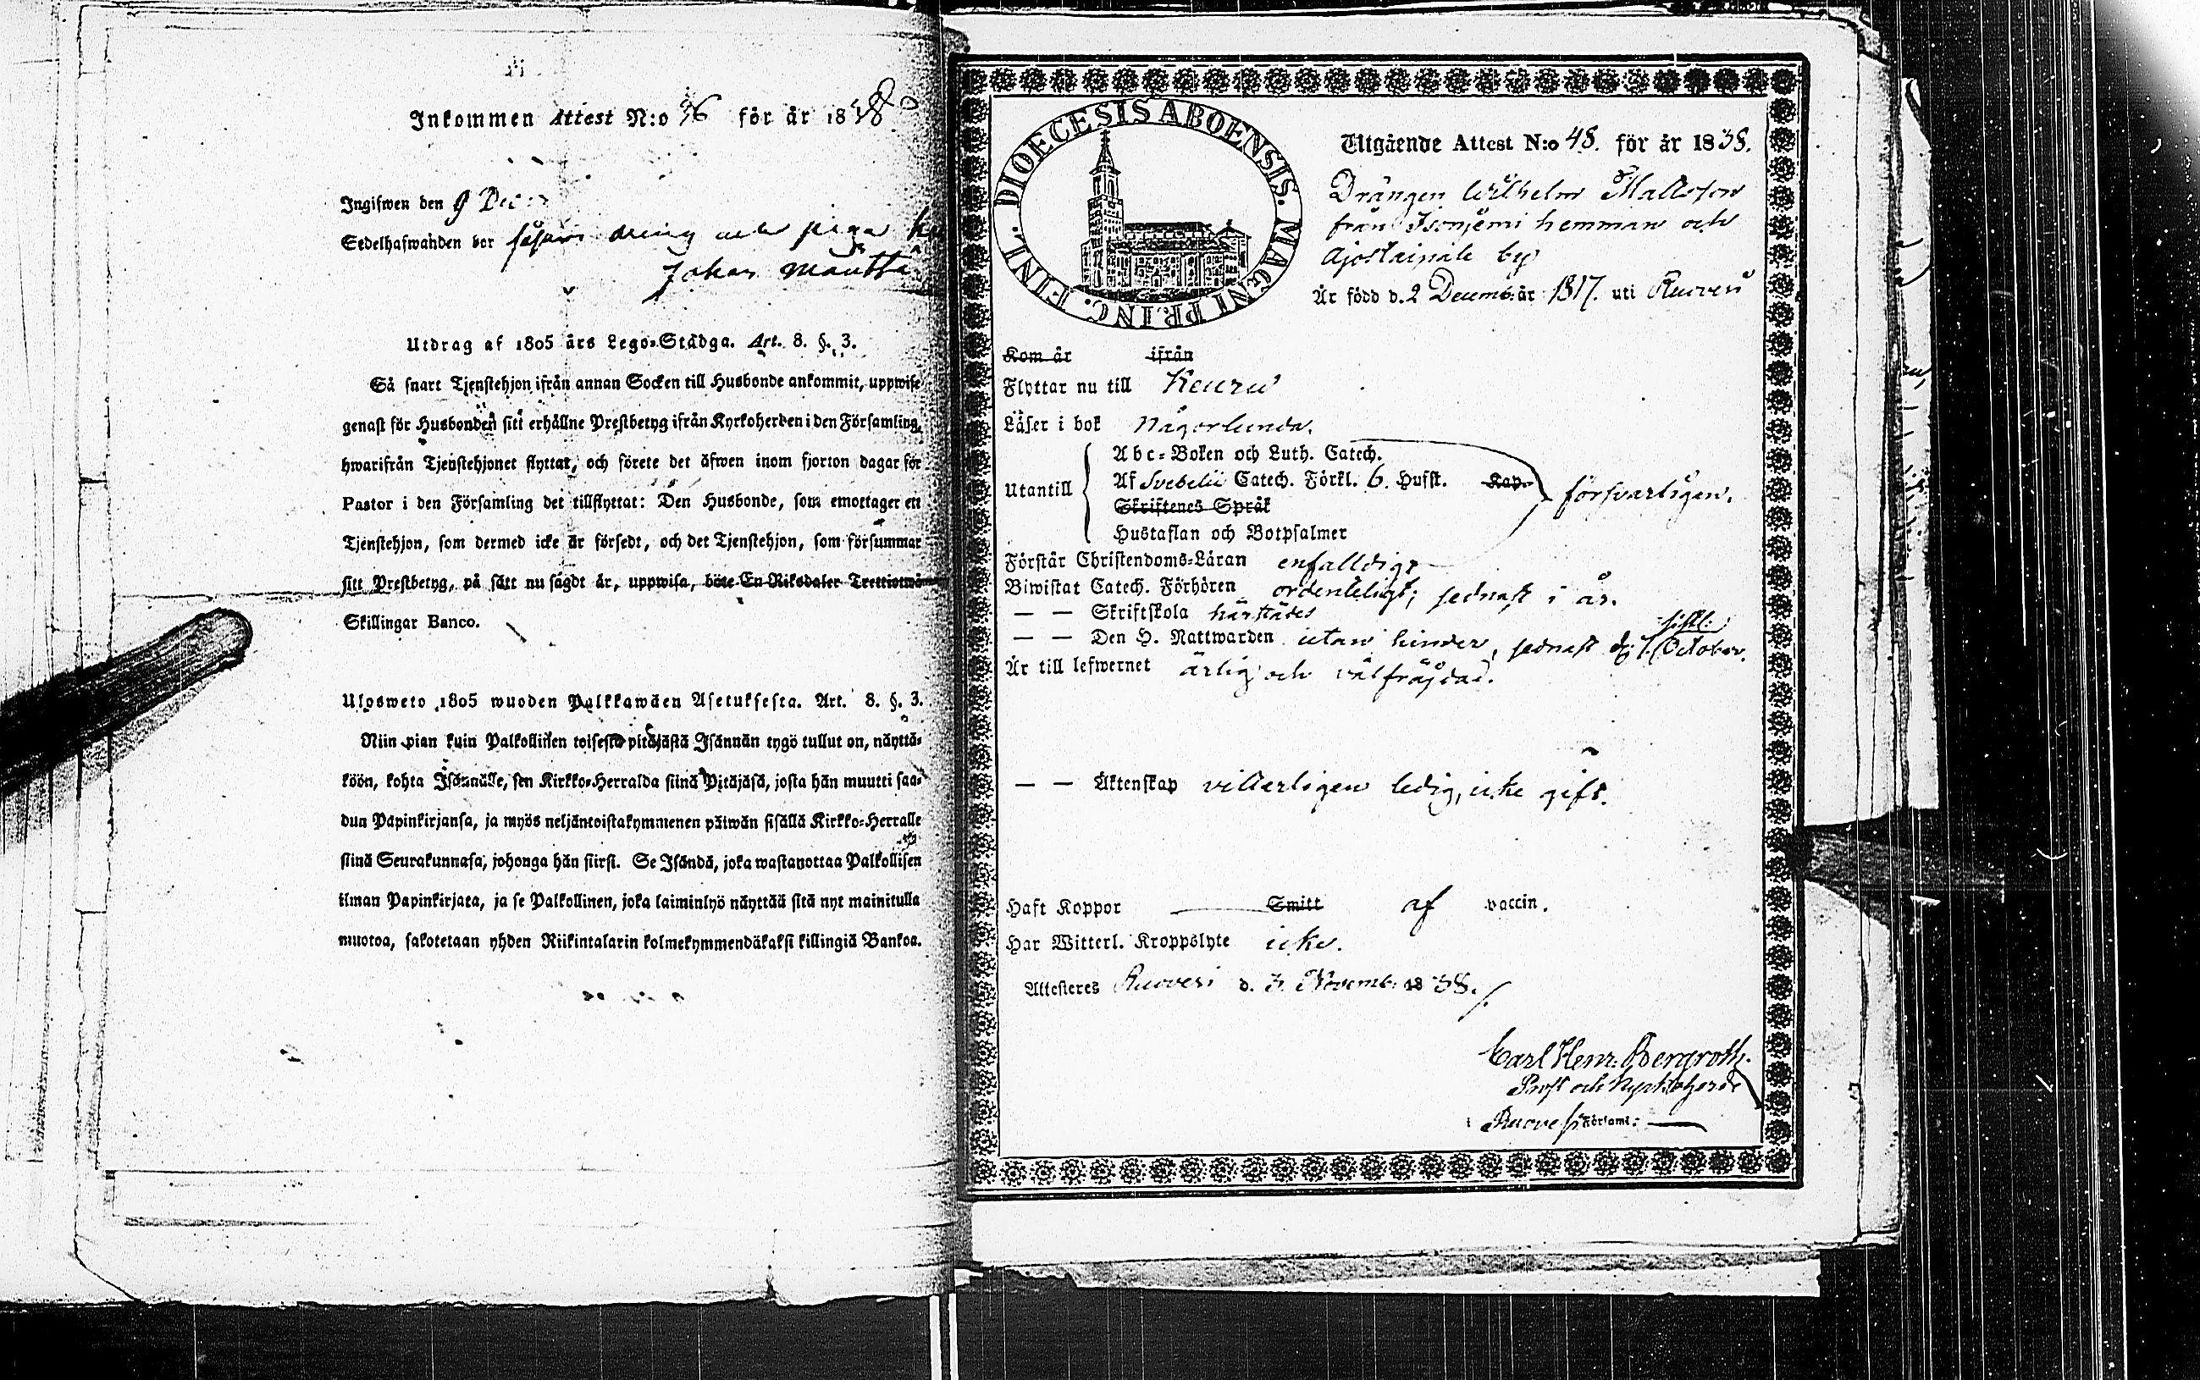 Inkommen Attest N:o 36 för år 1838
Ingifwen den 9 Dec:
Sedelhafwanden bor såsom dreng
Johan Mänttä
Utdrag af 1805 års Lego-Stadga. Art. 8. §. 3.
Så snart Tjenstehjon ifrån annan Socken till Husbonde ankommit, uppwise
genast för Husbonden sitt erhållne Prestbetyg ifrån Kyrkoherden i den Församling,
hwarifrån Tjenstehjonet flyttat, och förete det äfwen inom fjorton dagar för
Pastor i den Församling det tillflyttat: Den Husbonde, som emottager ett
Tjenstehjon, som dermed icke är försedt, och det Tjenstehjon, som försummar
sitt Prestbetyg, på sätt nu sagdt är, uppwisa, böte En Riksdaler Trettiotwå
Skillingar Banco.
Ulosweto 1805 wuoden Palkkawäen Asetuksesta. Art. 8. §. 3.
Niin pian kuin Palkollinen toisesta pitäjästä Isännän tygö tullut on, näyttä-
köön, kohta Isännälle, sen Kirkko-Herralda siinä Pitäjäsä, josta hän muutti saa-
dun Papinkirjansa, ja myös neljäntoistakymmenen päiwän sisällä Kirkko-Herralle
siinä Seurakunnasa, johonga hän siirsi. Se Isändä, joka wastanottaa Palkollisen
ilman Papinkirjata, ja se Palkollinen, joka laiminlyö näyttää sitä nyt mainitulla
muotoa, sakotetaan yhden Riikintalarin kolmekymmendäkaksi killingiä Bankoa.
DIOECESIS ABOENSIS. MAGNI PRINC. FINL.
Utgående Attest N:o 48. för år 1838.
Drängen Wilhelm Mattsson
från Isoniemi hemman och
by
Är född d. 2 Decemb: år 1817. uti Ruovesi
Kom år ifrån
Flyttar nu till Keuru
Läser i bok någorlunda.
Utantill
Abc-Boken och Luth. Catech.
Af Svebelii Catech. Förkl. 6. Hufst. Kap.
Skriftenes Språk
Hustaflan och Botpsalmer
försvarligen.
Förstår Christendoms-Läran enfalldigt
Biwistat Catech. Förhören ordenteligt, sednast i år.
— — Skriftskola härstädes
— — Den H. Nattwarden utan hinder, sednast d. 7 sistl: October.
Är till lefwernet ärlig och välfräjdad.
— — Äktenskap vitterligen ledig, icke gift.
Haft Koppor Smitt af vaccin.
Har Witterl. Kroppslyte icke.
Attesteres Ruovesi d. 3. Novemb: 1838.
Carl Henr. Bergroth.
Prost och Kyrkoherde
i Ruovesi Församl: